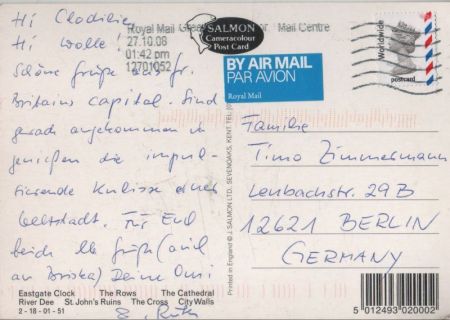 Hi Clodilie,
Hi Wolle!
Schöne Grüße aus Gr.
Britains Capital. Sind
gerade angekommen u
genießen die impul-
sierende Kulisse einer
Weltstadt. Für Euch
beide lb Grüße (und
an Briska) Deine Omi
&
Royal Mail
Mail Centre
27.10.08
01:42 pm
12701052
SALMON
Cameracolour
Post Card
BY AIR MAIL
PAR AVION
Royal Mail
Worldwide
postcard
Familie
Timo Zimmermann
Leubachstr. 29B
12621 BERLIN
GERMANY
Printed in England © J. SALMON LTD. SEVENOAKS, KENT.
Eastgate Clock The Rows The Cathedral
River Dee St John's Ruins The Cross City Walls
2 - 18 - 01 - 51
5 012493 020002